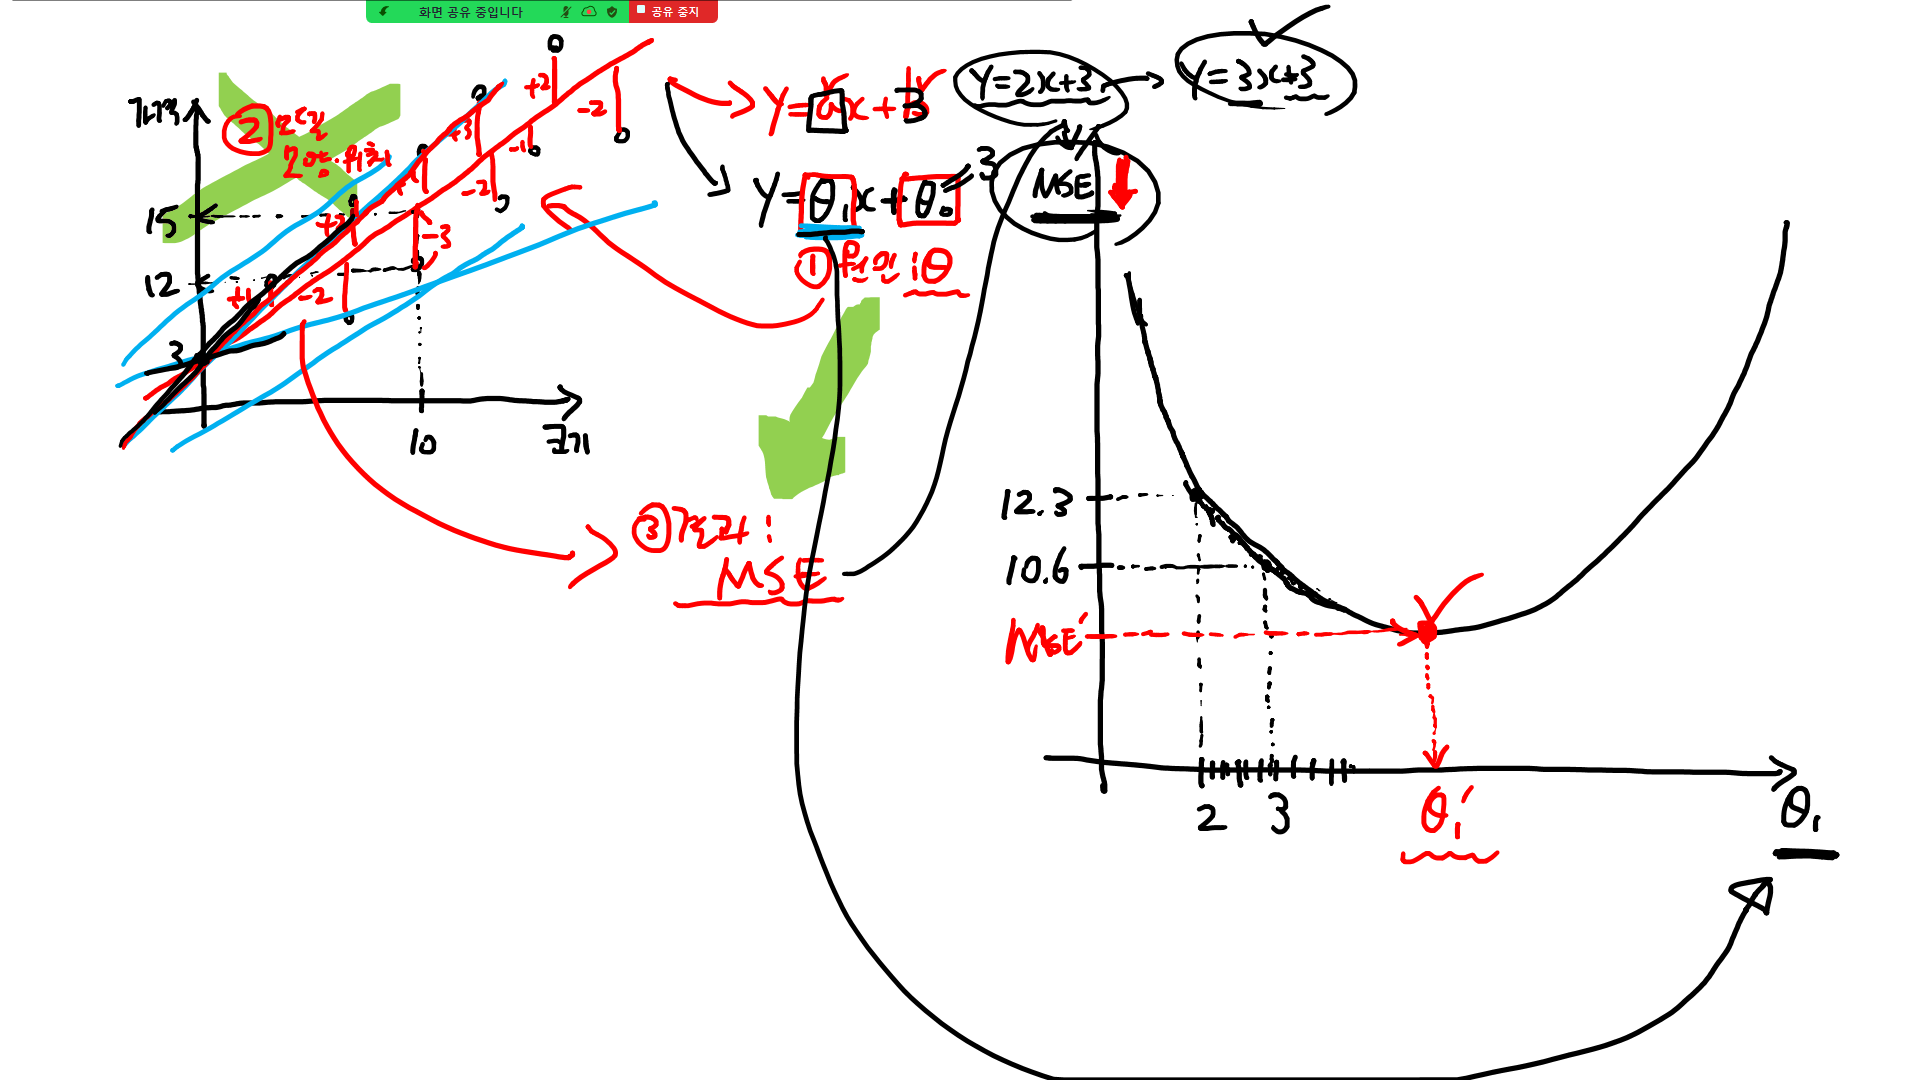 화면 공유 중입니다
공유 중지
가격
② 모델
모양·위치
15
12
3
10
크기
+1
-2
+2
-3
+1
-2
+3
-1
+2
-2
Y=ax+b
3
Y=θ₁x+θ₀
3
① 원인:θ
③ 결과:
MSE
Y=2x+3
Y=3x+3
MSE
12.3
10.6
MSE'
2
3
θ₁'
θ₁